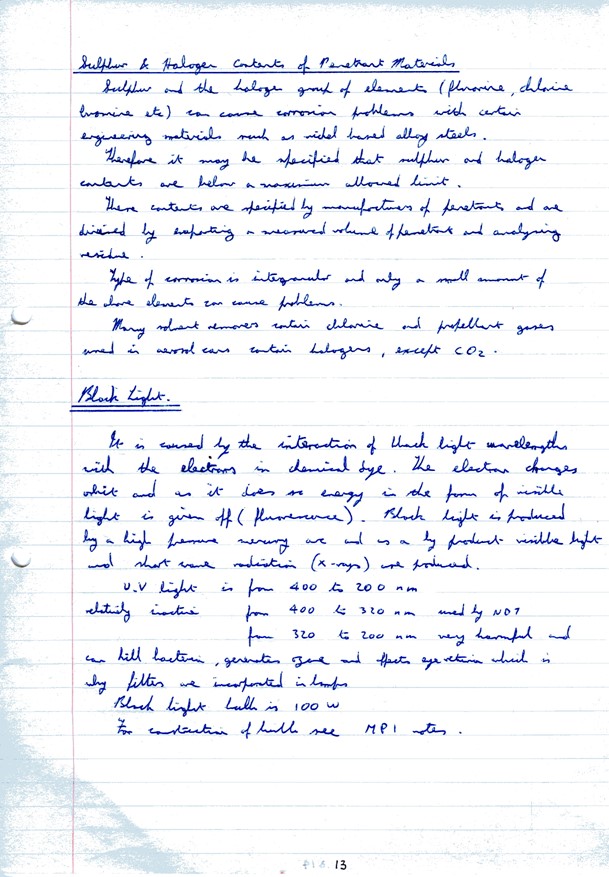 Sulphur & Halogen Contents of Penetrant Materials
Sulphur and the halogen group of elements (fluorine, chlorine
bromine etc) can cause corrosion problems with certain
engineering materials such as nickel based alloy steels.
Therefore it may be specified that sulphur and halogen
contents are below a maximum allowed limit.
These contents are specified by manufacturers of penetrants and are
by evaporating a measured volume of penetrant and analysing
residue.
Type of corrosion is intergranular and only a small amount of
the above elements can cause problems.
Many solvent removers contain chlorine and propellant gases
used in aerosol cans contain halogens, except CO2.
Black Light.
It is caused by the interaction of black light wavelengths
with the electrons in chemical dye. The electron changes
orbit and as it does so energy in the form of visible
light is given off (fluorescence). Black light is produced
by a high pressure mercury arc and as a by product visible light
and short wave radiation (x-rays) are produced.
U.V light is from 400 to 200 nm
relatively inactive from 400 to 320 nm used by NDT
from 320 to 200 nm very harmful and
can kill bacteria, generates ozone and effects eye retina which is
why filters are incorporated in lamps
Black light bulb is 100 W
For construction of bulb see MPI notes.
13